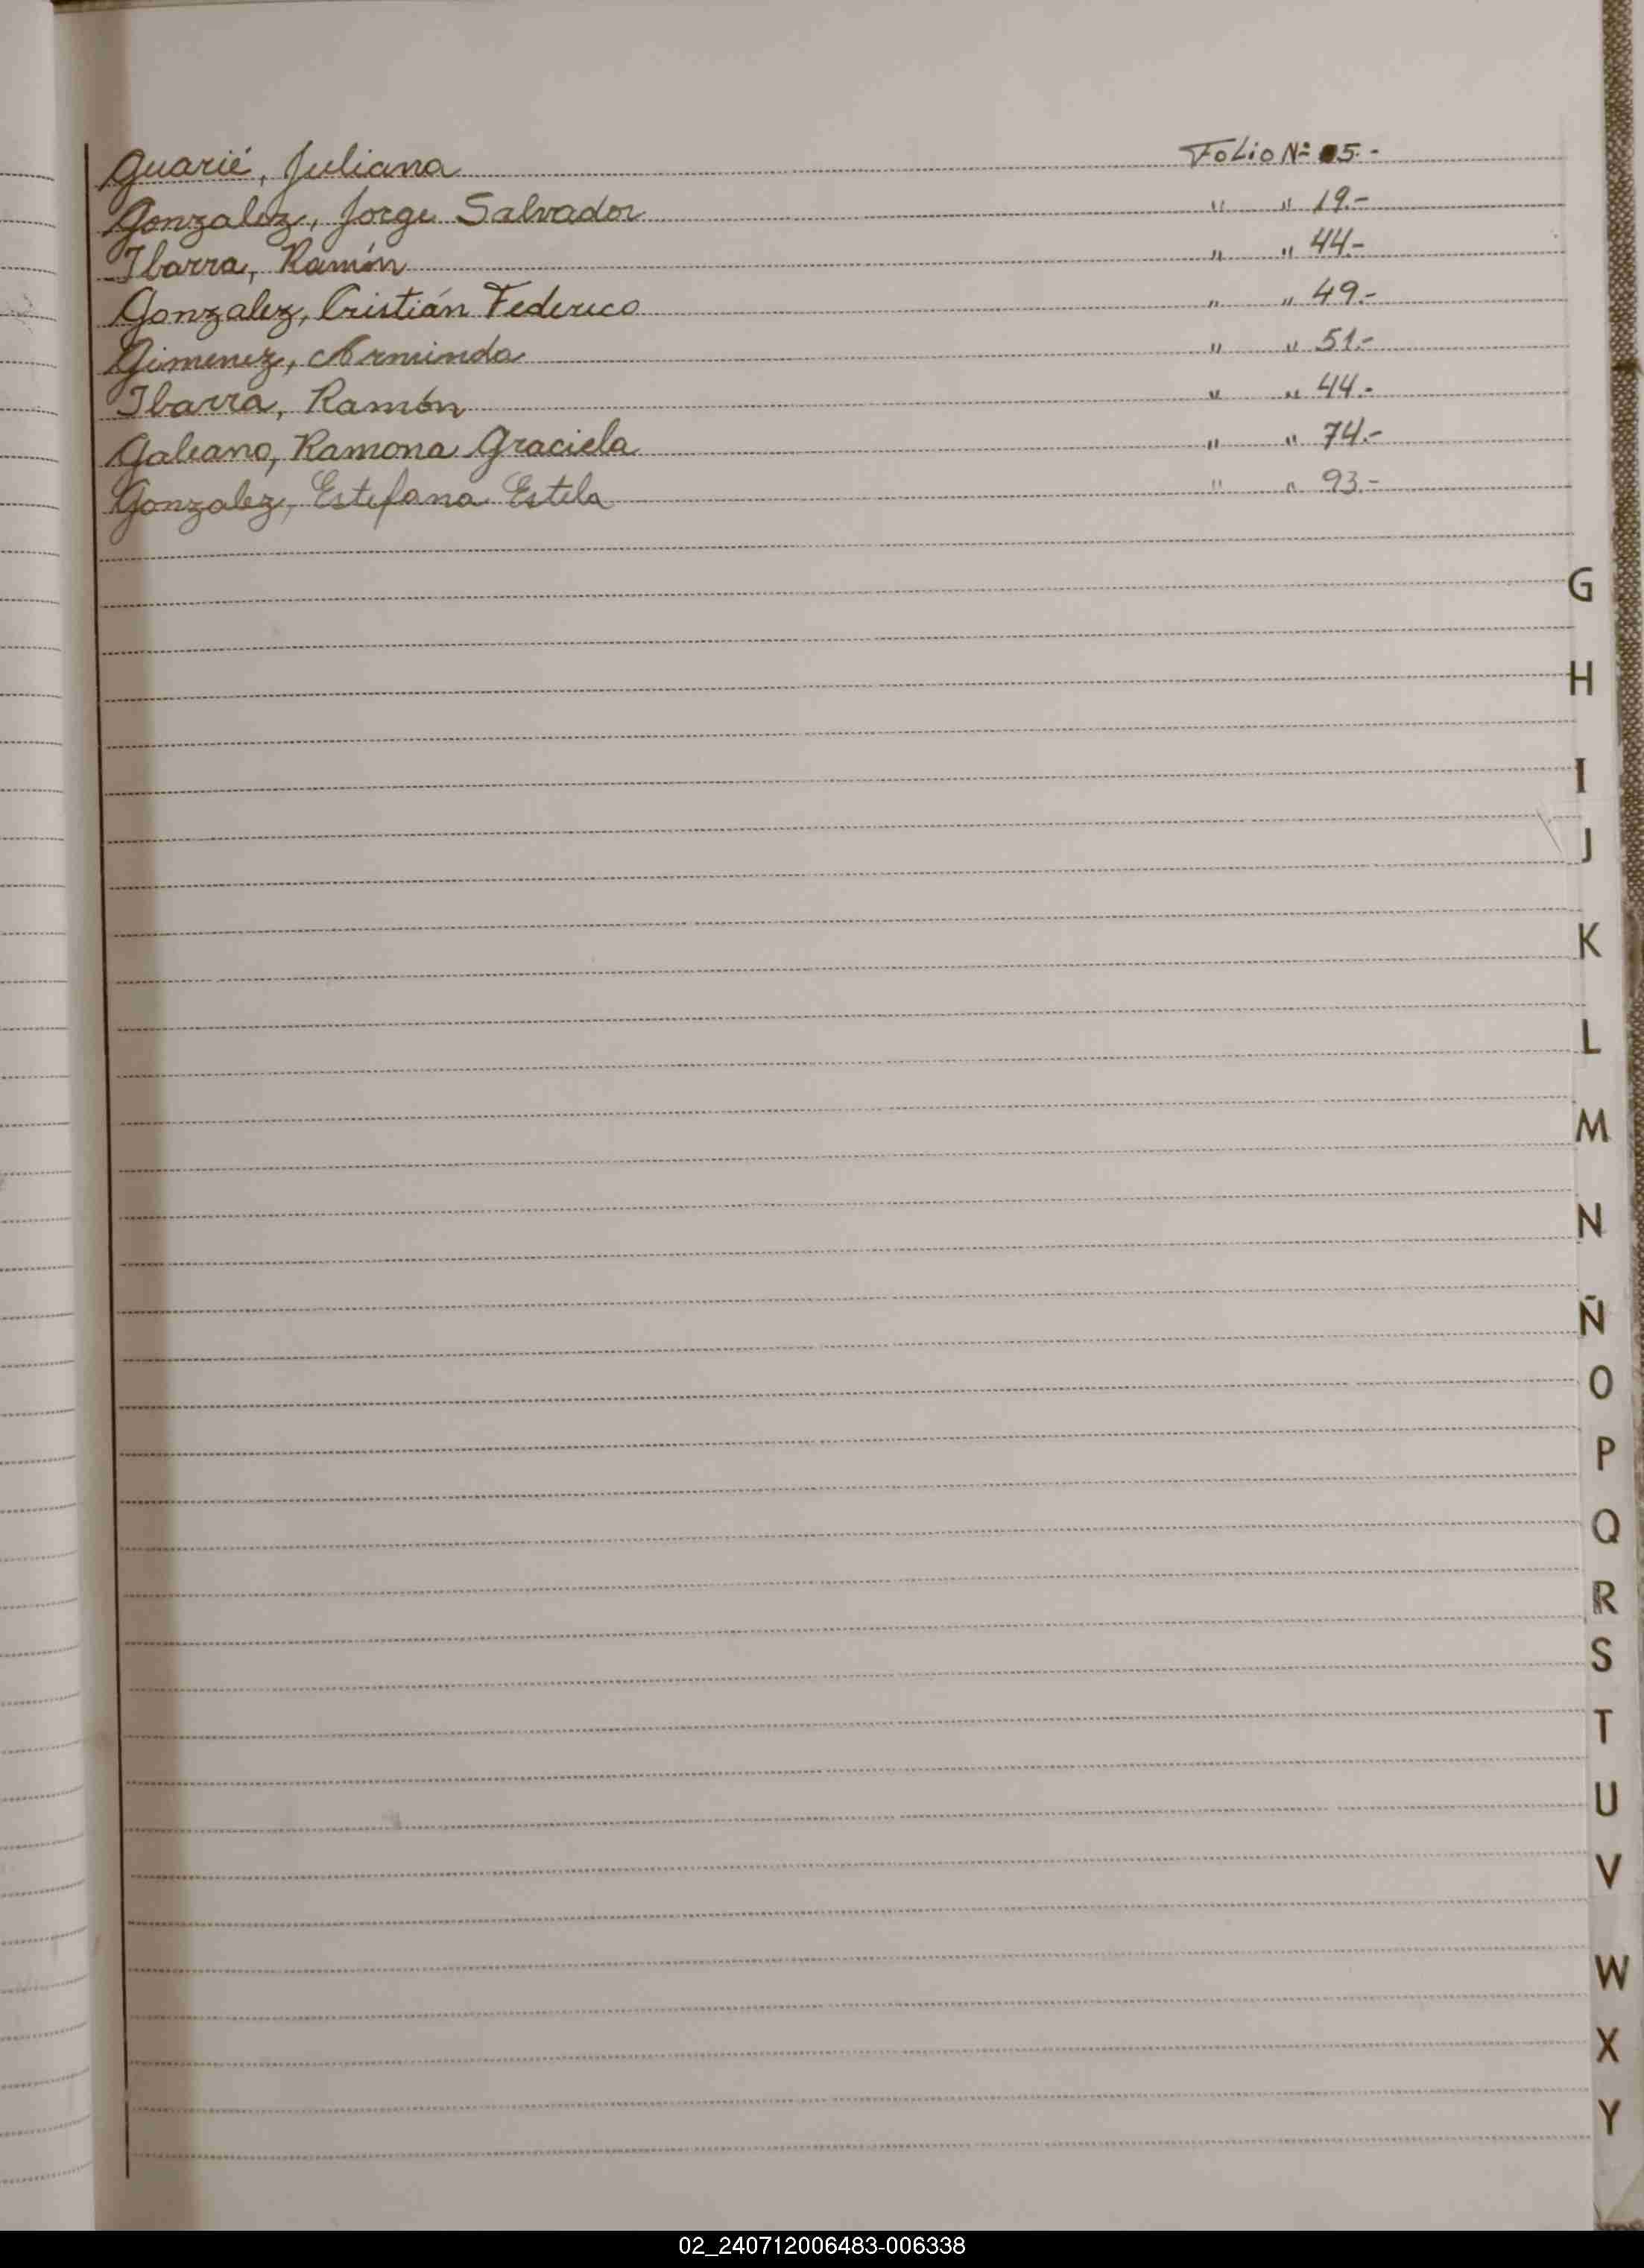 Guarié, Juliana Folio Nº 5.-
Gonzalez, Jorge Salvador " " 19.-
Ibarra, Ramón " " 44.-
Gonzalez, Cristián Federico " " 49.-
Gimenez, Arminda " " 51.-
Ibarra, Ramón " " 44.-
Galeano, Ramona Graciela " " 74.-
Gonzalez, Estefana Estela " " 93.-
G
H
I
J
K
L
M
N
Ñ
O
P
Q
R
S
T
U
V
W
X
Y
02_240712006483-006338